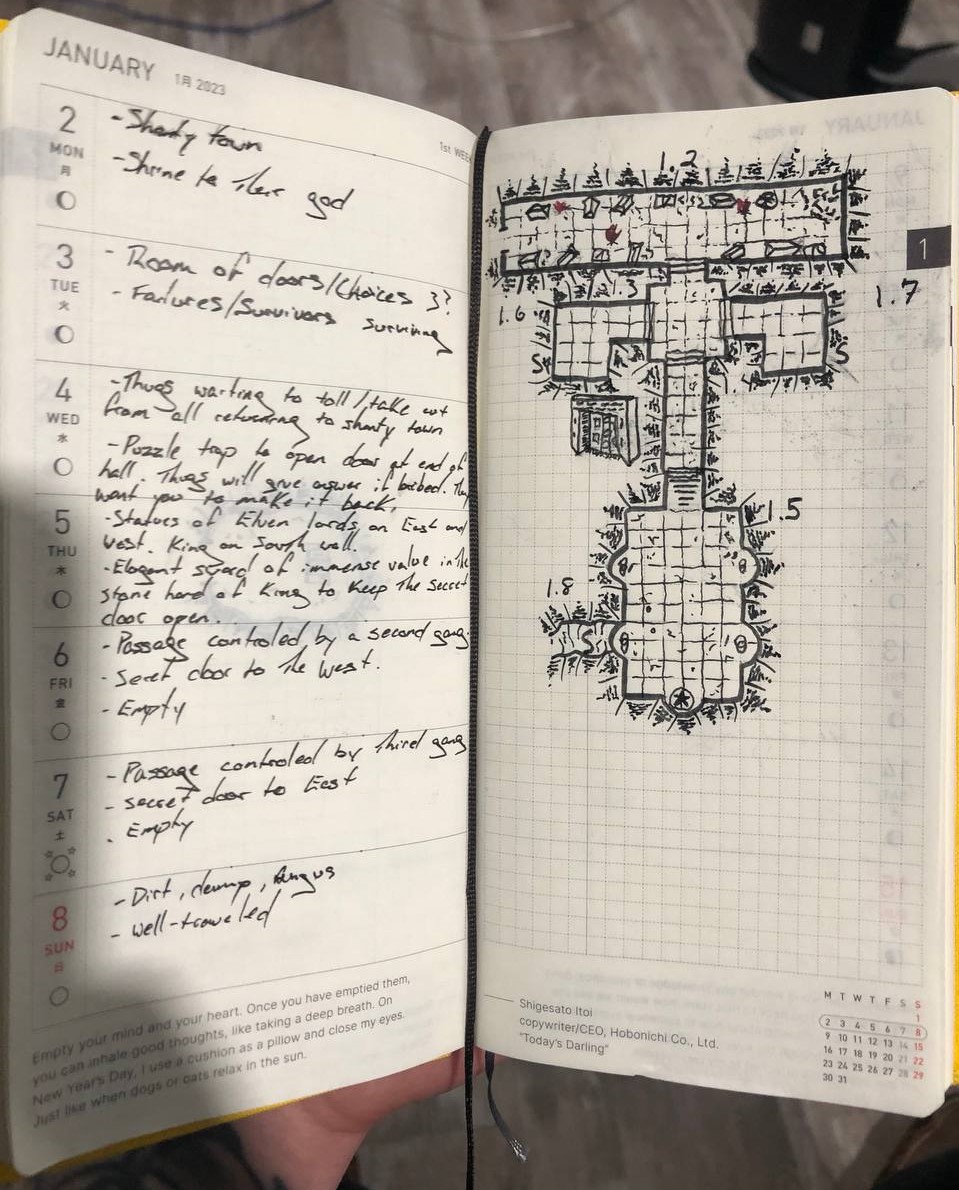 JANUARY 1月 2023
1st WEE
2
MON
月
- Shanty town
- Shrine to their god
3
TUE
火
- Room of doors/Choices 3?
- Failures/Survivors surviving
4
WED
水
- Thugs waiting to toll/take cut
from all returning to shanty town
- Puzzle trap to open door at end of
hall. Thugs will give answer if bribed. They
want you to make it back.
5
THU
木
- Statues of Elven lords on East and
West. King on South wall.
- Elegant sword of immense value in the
stone hand of King to keep the secret
door open.
6
FRI
金
- Passage controled by a second gang
- Secret door to the West.
- Empty
7
SAT
土
- Passage controled by third gang
- secret door to East
- Empty
8
SUN
日
- Dirt, damp, fungus
- well-traveled
Empty your mind and your heart. Once you have emptied them,
you can inhale good thoughts, like taking a deep breath. On
New Year's Day, I use a cushion as a pillow and close my eyes.
Just like when dogs or cats relax in the sun.
1.2
1
1.3
1.7
1.6
S
S
1.5
1.8
S
Shigesato Itoi
copywriter/CEO, Hobonichi Co., Ltd.
"Today's Darling"
M T W T F S S
1
2 3 4 5 6 7 8
9 10 11 12 13 14 15
16 17 18 19 20 21 22
23 24 25 26 27 28 29
30 31